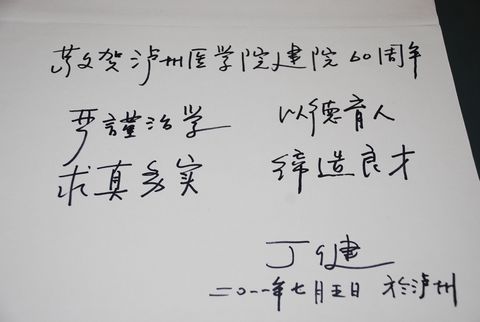 敬贺泸州医学院建院60周年
严謹治学 以德育人
求真务实 缔造良才
丁健
二〇一一年七月五日 於泸州